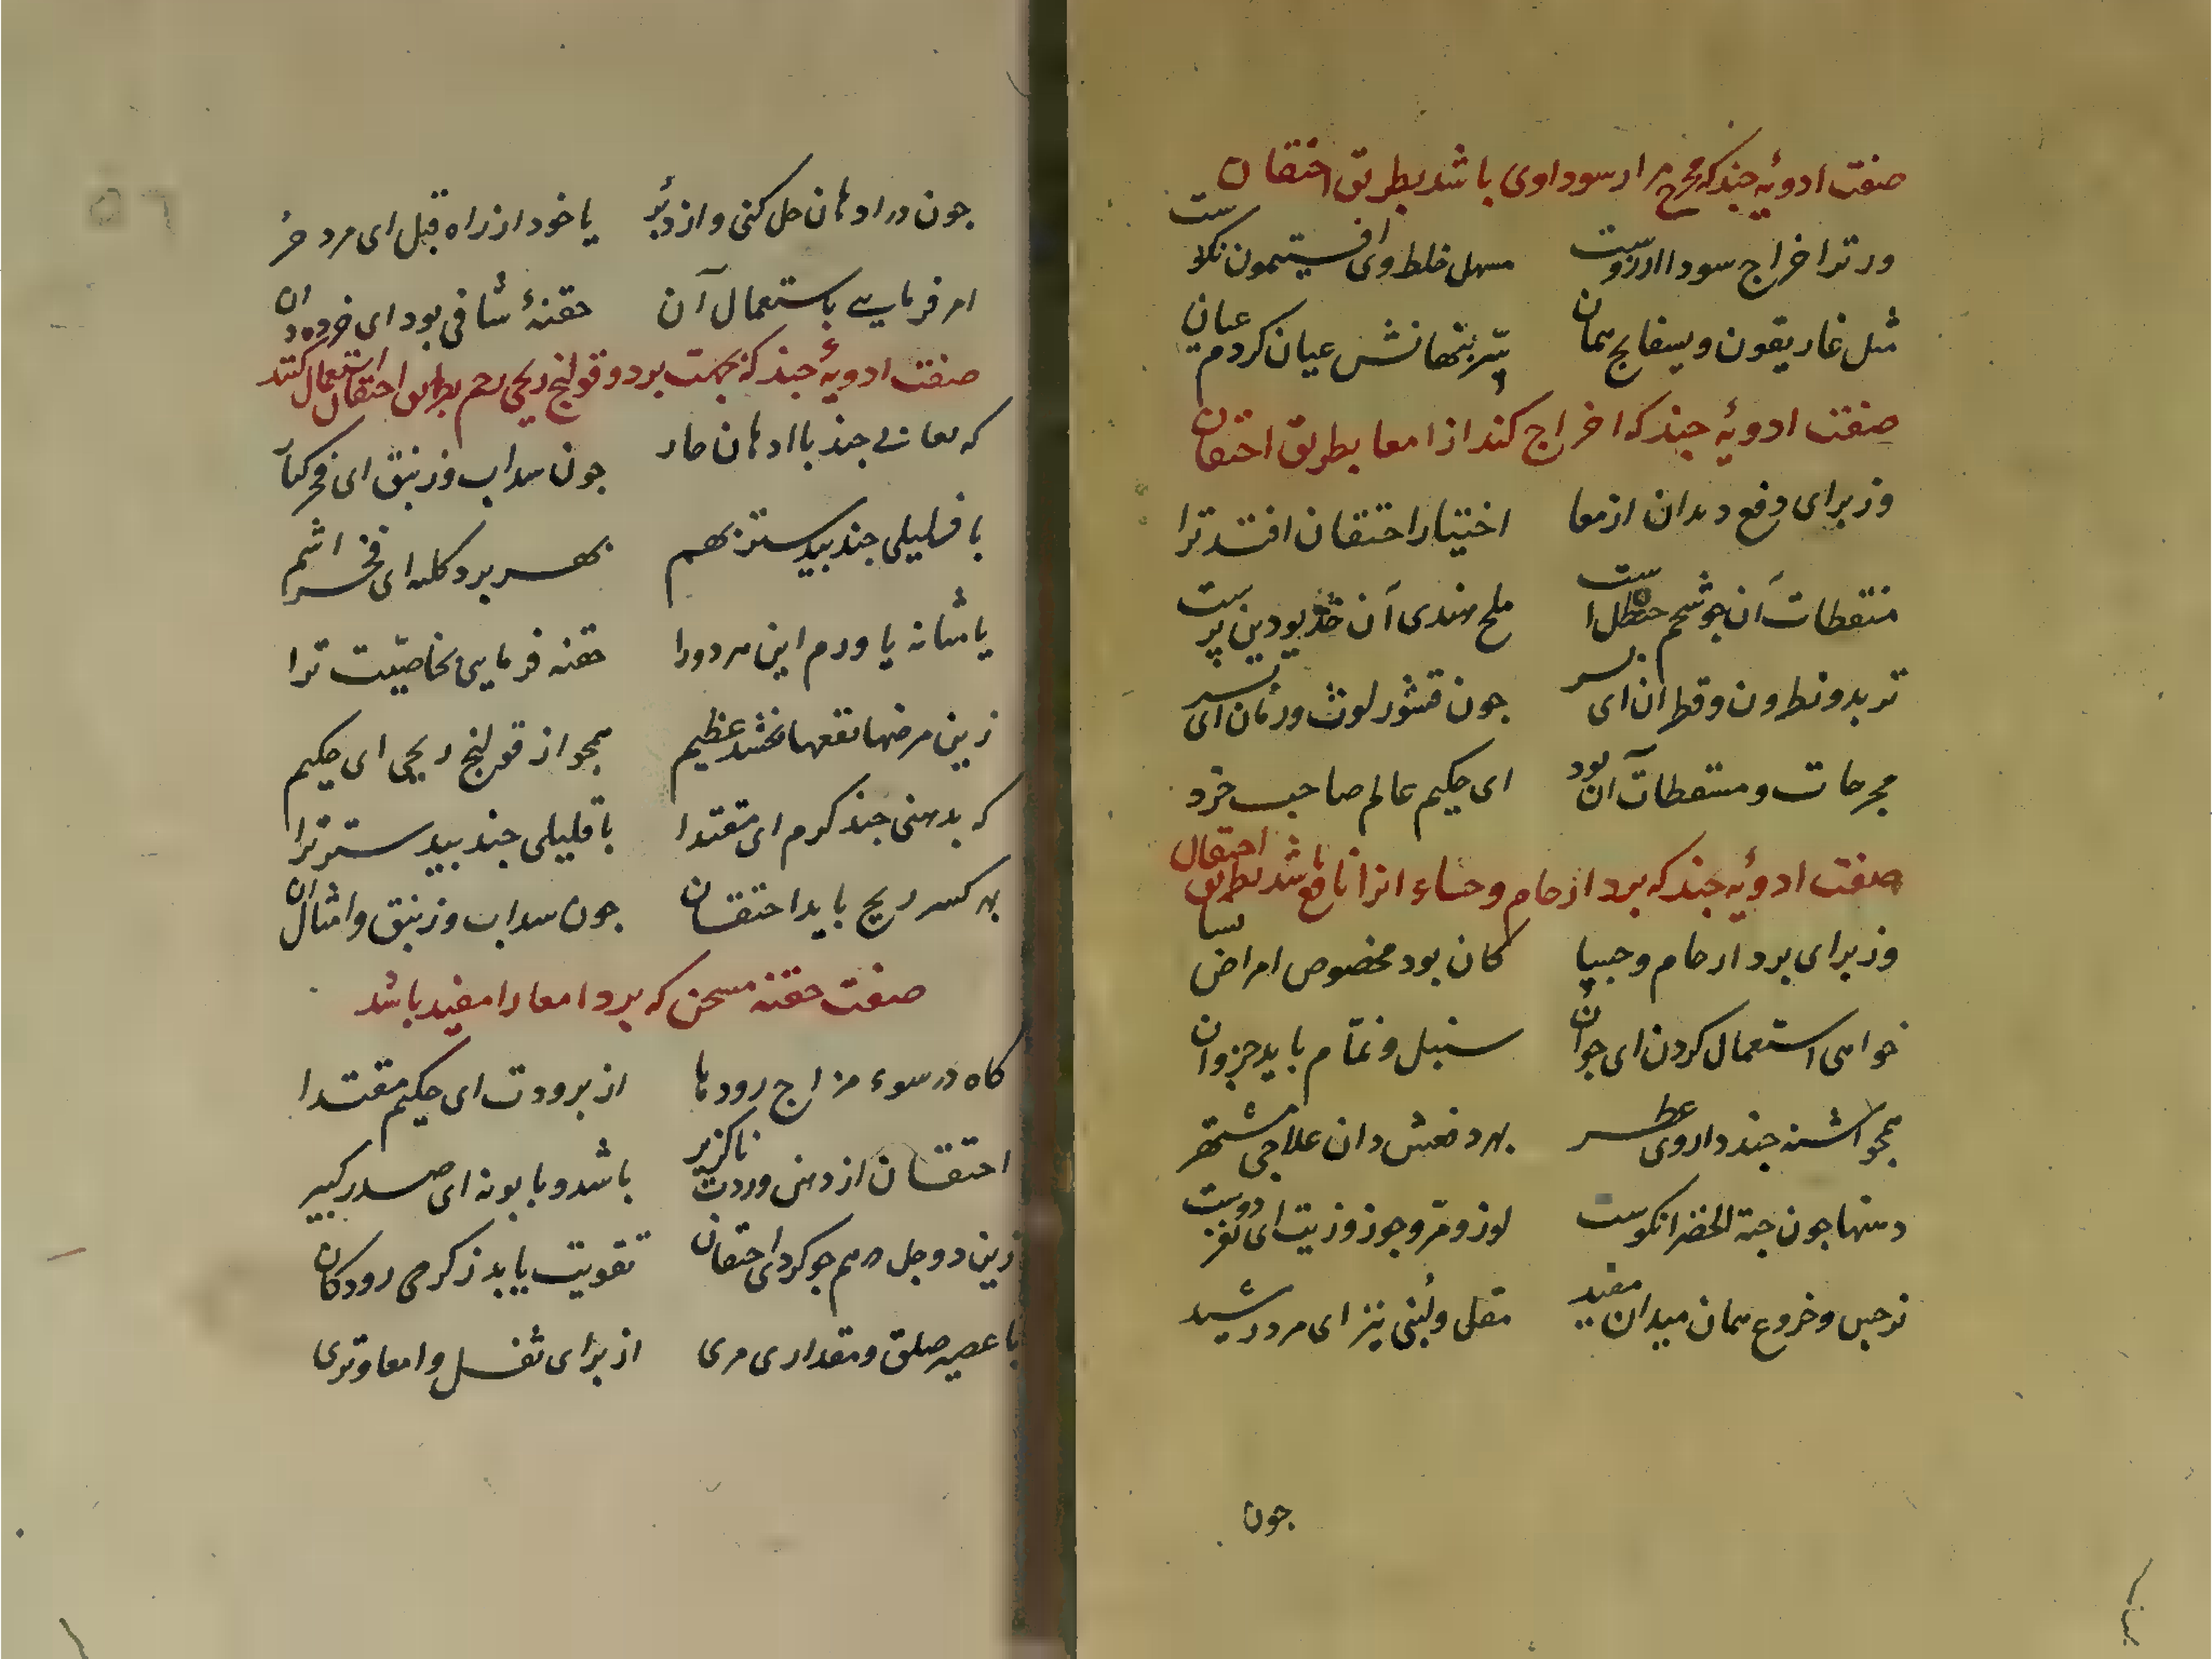 صفت ادویهٔ جند که مخرج مرار سوداوی باشد بطریق احتقان
ور ترا خراج سودا ارزوست مسهل خلط وی افیتمون نکوست
مثل غاریقون و بسفایج همان سر بنهانش عیان کردم عیان
صفت ادویهٔ جند که اخراج کند از امعا بطریق احتقان
وز برای دفع دیدان از معا اختیار احتقان افتد ترا
منقطات آن جو شحم حنظل است ملح هندی آن
تربد و نطرون و قطران ای بسر جون قشور لوث و رمان ای
مجرحات و مسقطات آن بود ای حکیم عالم صاحب خرد
صفت ادویهٔ جند که برد ارحام و حساء انرا نافع باشد بطریق احتقان
وز برای برد ارحام و جیبا کان بود مخصوص امراض نسا
خواهی استعمال کردن ای جوان سنبل و نمّام باید جزو ان
همجو اشنه جند داروی عطر بهر دفعش دان علاجی مشتهر
دهنها جون حبة الخضرا نکوست لوز و مرّ و جوز و زیت ای نغز دوست
نرجس و خروع همان میدان مفید مقل و لُبنی نیز ای مرد رشید
جون
جون در ادهان حل کنی و از دبُر یا خود از راه قبل ای مرد حر
امر فرمایی باستعمال آن حقنهٔ شافی بود ای خرده دان
صفت ادویهٔ جند که بجهت برد و قولنج ریحی رحم بطریق احتقان استعمال کنند
که لعابی جند با ادهان حار جون سداب و زنبق ای فخر کبار
با قلیلی جند بیدستر بهم بهر برد کلیه ای فخر اشم
یا مثانه یا ورم این هر دورا حقنه فرمایی بخاصیّت ترا
زین مرضها نفعها بخشد عظیم همجو از قولنج ریحی ای حکیم
که بدهنی جند کرم ای مقتدا با قلیلی جند بیدستر ترا
بهر کسر ریح باید احتقان جون سداب و زنبق و امثال ان
صفت حقنه مسخن که برد امعا را مفید باشد
کاه در سوء مزاج رودها از برودت ای حکیم مقتدا
احتقان از دهنی وردت ناکزیر باشد و بابونه ای صدر کبیر
زین دو جل هم جو کردی احتقان تقویت یابد ز کرمی رودکان
با عصیر صلق و مقداری مری از برای ثفل و امعا و تری